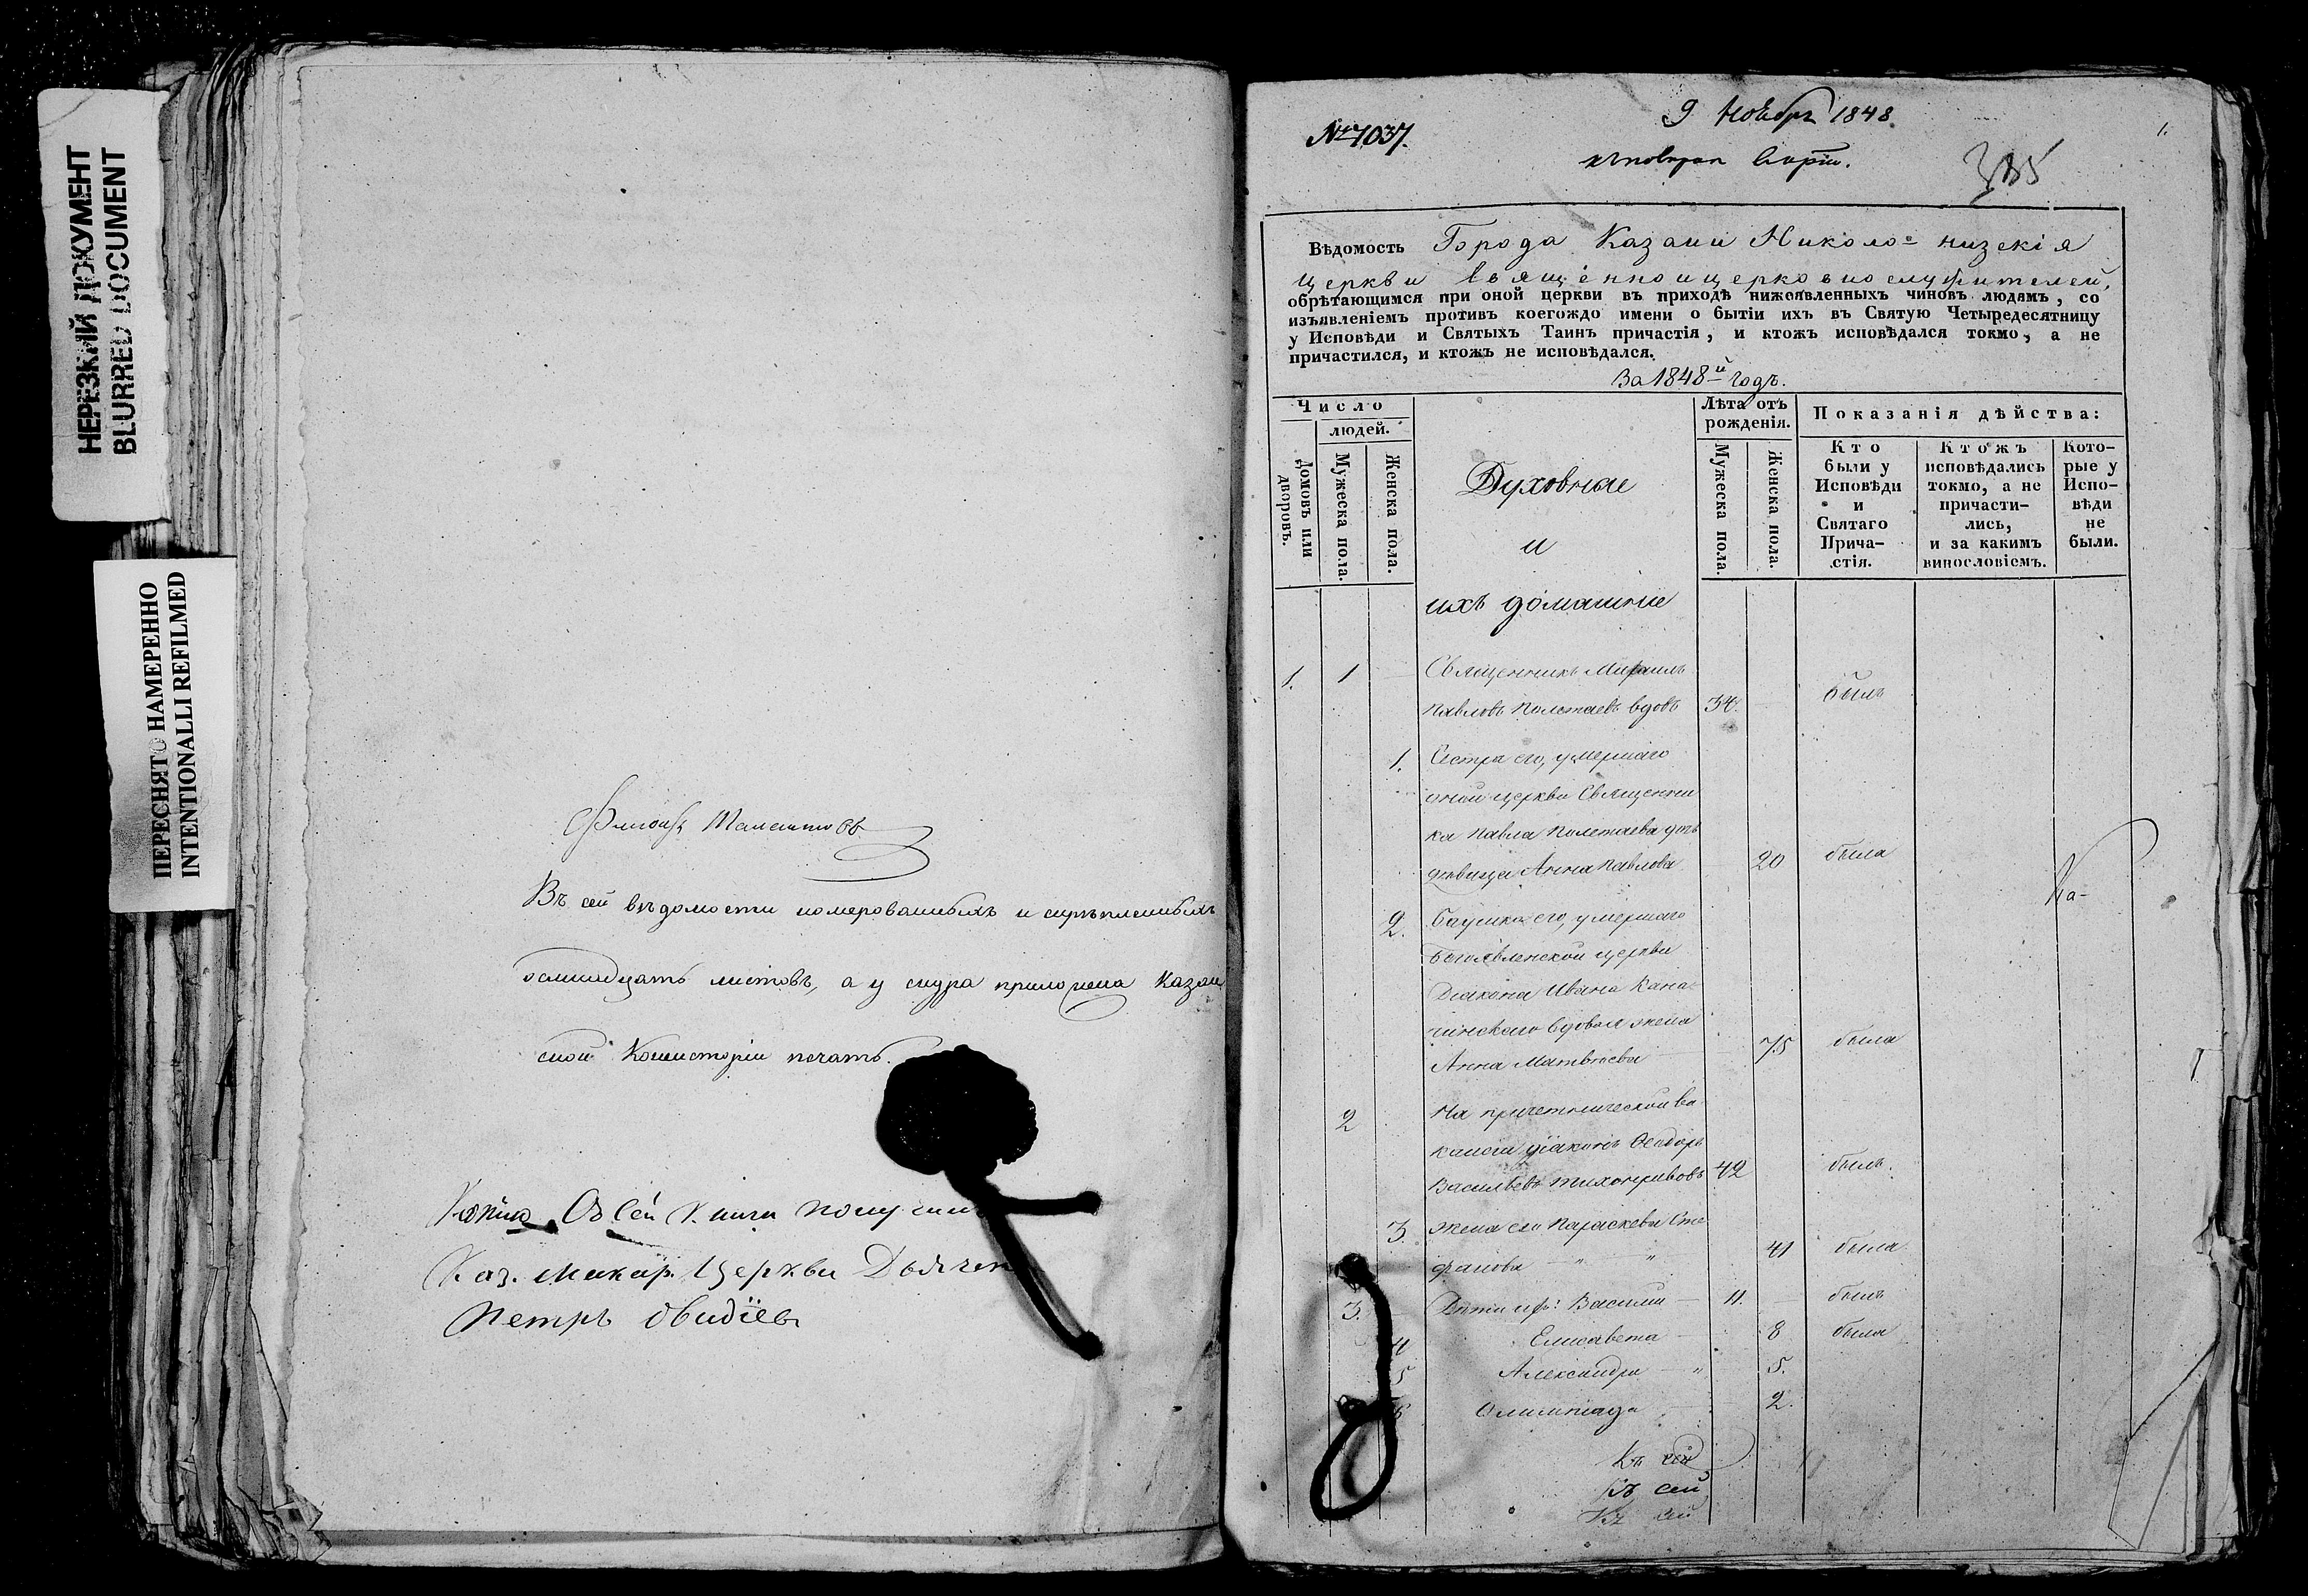 НЕРЕЗКИЙ ДОКУМЕНТ
BLURRED DOCUMENT
ПЕРЕСНЯТО НАМЕРЕННО
INTENTIONALLI REFILMED
Въ сей вѣдомости номерованныхъ и скрѣпленныхъ
осмнадцать листовъ, а у снура приложена Казан
ской Консисторіи печать.
Копію Съ сей книги получилъ
Каз. Макар. Церкви Дьячекъ
Петръ Овидіевъ
№ 7037.
9 Ноябр 1848
1.
385
Вѣдомость Города Казани Николо=низскія
церкви Священноицерковнослужителей,
обрѣтающимся при оной церкви въ приходѣ нижеявленныхъ чиновъ людямъ, со
изъявленіемъ противъ коегождо имени о бытіи ихъ въ Святую Четыредесятницу
у Исповѣди и Святыхъ Таинъ причастія, и ктожъ исповѣдался токмо, а не
причастился, и ктожъ не исповѣдался.
За 1848й годъ.
Число
людей.
Домовъ или дворовъ.
Мужеска пола.
Женска пола.
Духовные
и
ихъ домашніе
Лѣта отъ
рожденія.
Мужеска пола.
Женска пола.
Показанія дѣйства:
Кто
были у
Исповѣди
и
Святаго
Прича-
стія.
Ктожъ
исповѣдались
токмо, а не
причасти-
лись,
и за какимъ
винословіемъ.
Кото-
рые у
Испо-
вѣди
не
были.
1. 1 Священникъ Михаилъ
Павловъ Полетаевъ вдовъ 34. былъ
1. Сестра его, умершаго
оной церкви Священни
ка Павла Полетаева дочь
дѣвица Анна Павлова 20 была
Ка-
2. Баушка его, умершаго
Богоявленской церкви
Діакона Ивана Кана
шинскаго вдовая жена
Анна Матвѣева 75 была
2 На причетнической ва
кансіи діаконъ Ѳеодоръ
Васильевъ Тихонравовъ 42 былъ.
3. Жена его Параскева Сте
фанова 41 была
3. Дѣти ихъ: Василій 11. былъ
4 Елисавета 8 была
5 Александра 5.
6 Олимпіада 2.
Къ сей
Къ сей
Къ сей